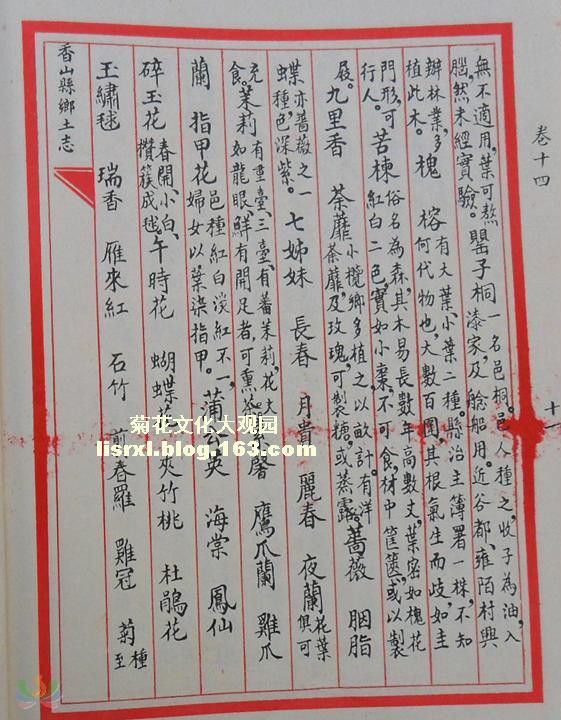 卷十四
十一
無不適用，葉可熬腦，然未經實驗。罌子桐一名邑桐。邑人種之，收子為油，入漆家，及艌船用。近谷都、雍陌村興
辦林業，多植此木。槐 榕有大葉、小葉二種。縣治主簿署一株，不知何代物也，大數百圍，其根氣生而歧，如圭
門形，可行人。苦楝俗名為森，其木易長，數年高數丈，葉密如槐，花紅白二色，實如小棗，不可食，材中筐篋，或以製
屐。九里香 荼蘼小欖鄉多植之，以畝計。有洋荼蘼，及玫瑰，可製糖，或蒸露。薔薇 胭脂
蝶亦薔薇之一種，色深紫。七姊妹 長春 月貴 麗春 夜蘭花葉俱可
充食。茉莉有重臺、三臺、有蕃茉莉，花大如龍眼，鮮有開足者，可熏 馨 鷹爪蘭 雞爪
蘭 指甲花邑種紅白淡紅不一，婦女以葉染指甲。蒲公英 海棠 鳳仙
碎玉花春開小白，攢簇成毬。午時花 蝴蝶 夾竹桃 杜鵑花
玉繡毬 瑞香 雁來紅 石竹 剪春羅 雞冠 菊種至
香山縣鄉土志
菊花文化大观园
lisrxl.blog.163.com